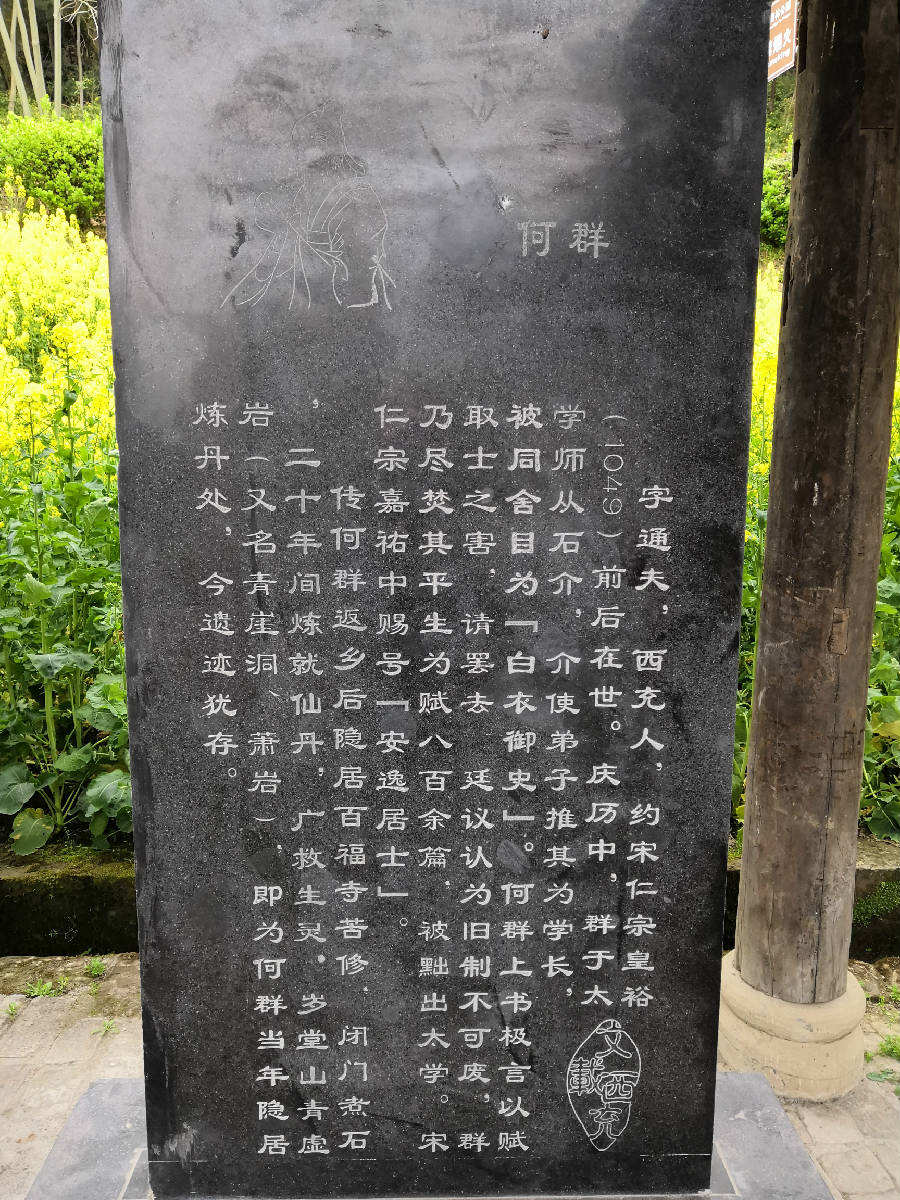 何群
字通夫，西充人，约宋仁宗皇祐
（1049）前后在世。庆历中，群于太
学师从石介，介使弟子推其为学长，
被同舍目为「白衣御史」。何群上书极言以赋
取士之害，请罢去 廷议认为旧制不可废，群
乃尽焚其平生为赋八百余篇，被黜出太学。宋
仁宗嘉祐中赐号「安逸居士」。
传何群返乡后隐居百福寺苦修，闭门煮石
，二十年间炼就仙丹，广救生灵。岁堂山青虚
岩（又名青崖洞、萧岩），即为何群当年隐居
炼丹处，今遗迹犹存。
文載西充